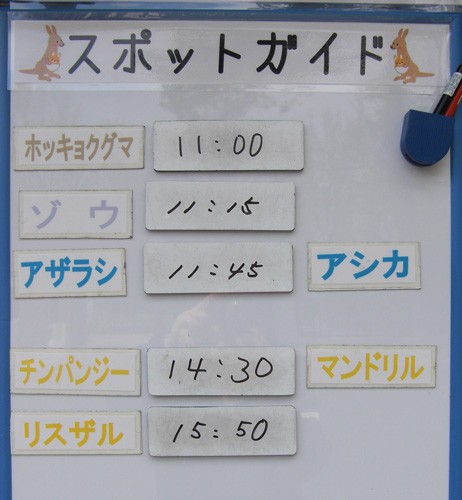 スポットガイド
ホッキョクグマ 11:00
ゾウ 11:15
アザラシ 11:45 アシカ
チンパンジー 14:30 マンドリル
リスザル 15:50